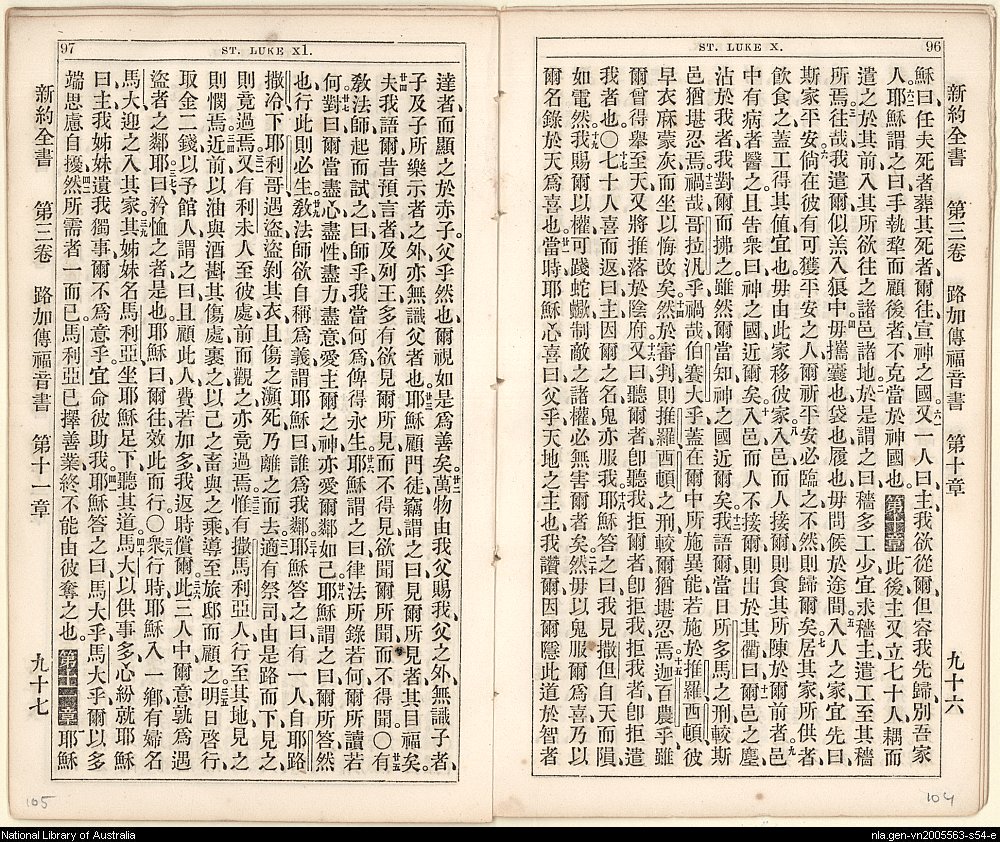 96
ST. LUKE X.
新約全書 第三卷 路加傳福音書 第十章 九十六
穌曰、任夫死者葬其死者、爾往宣神之國。六一又一人曰、主、我欲從爾、但容我先歸別吾家
人。六二耶穌謂之曰、手執犂而顧後者、不克當於神國也。第十章一此後、主又立七十人、耦而
遣之於其前、入其所欲往之諸邑諸地。二於是謂之曰、穡多工少、宜求穡主遣工至其穡
所焉。三往哉、我遣爾似羔入狼中。四毋攜囊也、袋也、履也、毋問候於途間。五入人之家、宜先曰、
斯家平安。六倘在彼有可獲平安之人、爾祈平安必臨之、不然、則歸爾矣。七居其家、所供者、
飲食之、蓋工得其値宜也、毋由此家移彼家。八入邑、而人接爾、則食其所陳於爾前者。九邑
中有病者醫之、且告衆曰、神之國近爾矣。十入邑而人不接爾、則出於其衢曰、十一爾邑之塵
沾於我者、我對爾而拂之、雖然、爾當知神之國近爾矣。十二我語爾、當日所多馬之刑、較斯
邑猶堪忍焉。十三禍哉、哥拉汛乎、禍哉、伯賽大乎、蓋在爾中所施異能、若施於推羅西頓、彼
早衣麻蒙灰而坐以悔改矣。十四然於審判、則推羅西頓之刑、較爾猶堪忍焉。十五迦百農乎、雖
爾曾得舉至天、又將推落於陰府。十六又曰、聽爾者、卽聽我、拒爾者、卽拒我、拒我者、卽拒遣
我者也。〇十七七十人喜而返、曰、主、因爾之名、鬼亦服我。十八耶穌答之曰、我見撒但自天而隕
如電然。十九我賜爾以權、可踐蛇蠍、制敵之諸權、必無害爾者矣。二十然毋以鬼服爾爲喜、乃以
爾名錄於天爲喜也。廿一當時耶穌心喜曰、父乎、天地之主也、我讚爾、因爾隱此道於智者
104
97
ST. LUKE XI.
達者、而顯之於赤子。父乎、然也、爾視如是爲善矣。廿二萬物由我父賜我、父之外、無識子者、
子及子所樂示者之外、亦無識父者也。廿三耶穌顧門徒、竊謂之曰、見爾所見者、其目福矣。
廿四夫我語爾、昔預言者及列王、多有欲見爾所見、而不得見、欲聞爾所聞、而不得聞。〇廿五有
敎法師起而試之曰、師乎、我當何爲、俾得永生。廿六耶穌謂之曰、律法所錄若何、爾所讀若
何。廿七對曰、爾當盡心盡性盡力盡意、愛主爾之神、亦愛爾鄰如己。廿八耶穌謂之曰、爾所答然
也、行此則必生。廿九敎法師欲自稱爲義、謂耶穌曰、誰爲我鄰。三十耶穌答之曰、有一人自耶路
撒冷下耶利哥、遇盜、盜剝其衣、且傷之、瀕死、乃離之而去。三一適有祭司由是路而下、見之、
則竟過焉。三二又有利未人至彼處、前而觀之、亦竟過焉。三三惟有撒馬利亞人、行至其地、見之、
則憫焉。三四近前、以油與酒斟其傷處、裹之、以己之畜與之乘、導至旅邸而顧之。三五明日啓行、
取金二錢以予館人、謂之曰、且顧此人、費若加多、我返時償爾。三六此三人中、爾意孰爲遇
盜者之鄰耶。三七曰、矜恤之者是也、耶穌曰、爾往效此而行。〇三八衆行時、耶穌入一鄉、有婦名
馬大、迎之入其家。三九其姊妹名馬利亞、坐耶穌足下、聽其道。四十馬大以供事多、心紛、就耶穌
曰、主、我姊妹遺我獨事、爾不爲意乎、宜命彼助我。四一耶穌答之曰、馬大乎、馬大乎、爾以多
端思慮自擾。四二然所需者、一而已、馬利亞已擇善業、終不能由彼奪之也。第十一章一耶穌
新約全書 第三卷 路加傳福音書 第十一章 九十七
105
National Library of Australia
nla.gen-vn2005563-s54-e